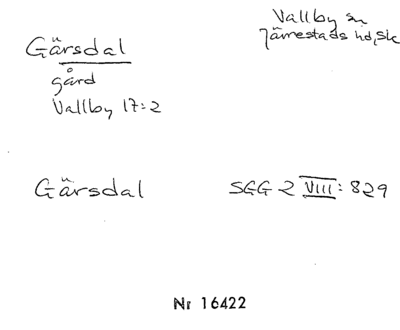 Gärsdal
gård
Vallby 17:2
Vallby sn
Järrestads hd, Sk
Gärsdal
SGG 2 VIII: 829
Nr 16422